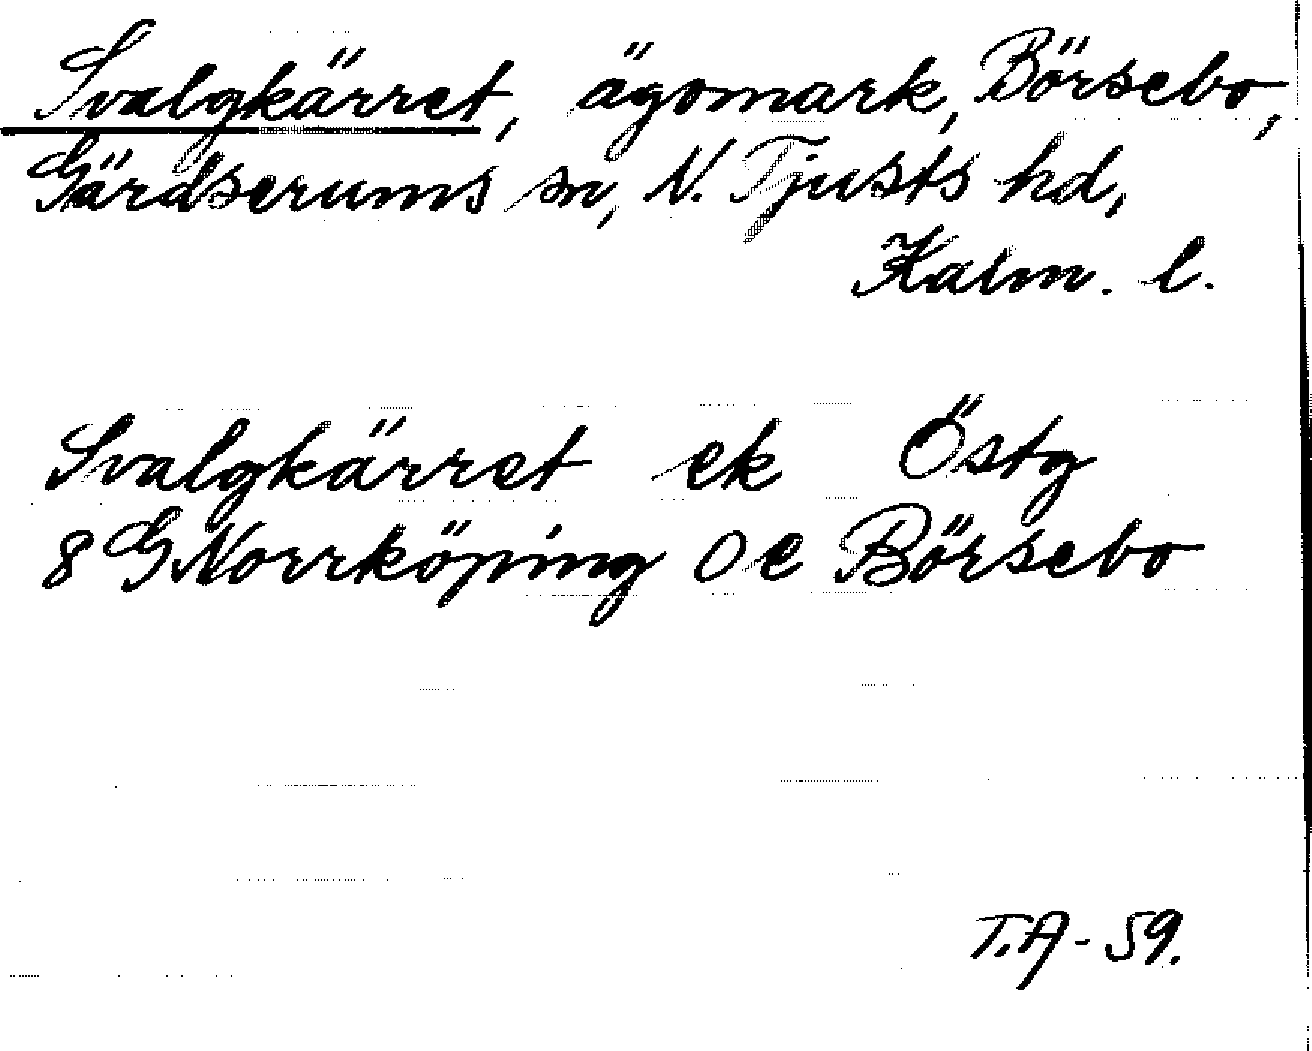 Svalgkärret, ägomark, Börsebo,
Gärdserums sn, N. Tjusts hd,
Kalm. l.
Svalgkärret ek Östg
8 G Norrköping 0 e Börsebo
T.A - 59.